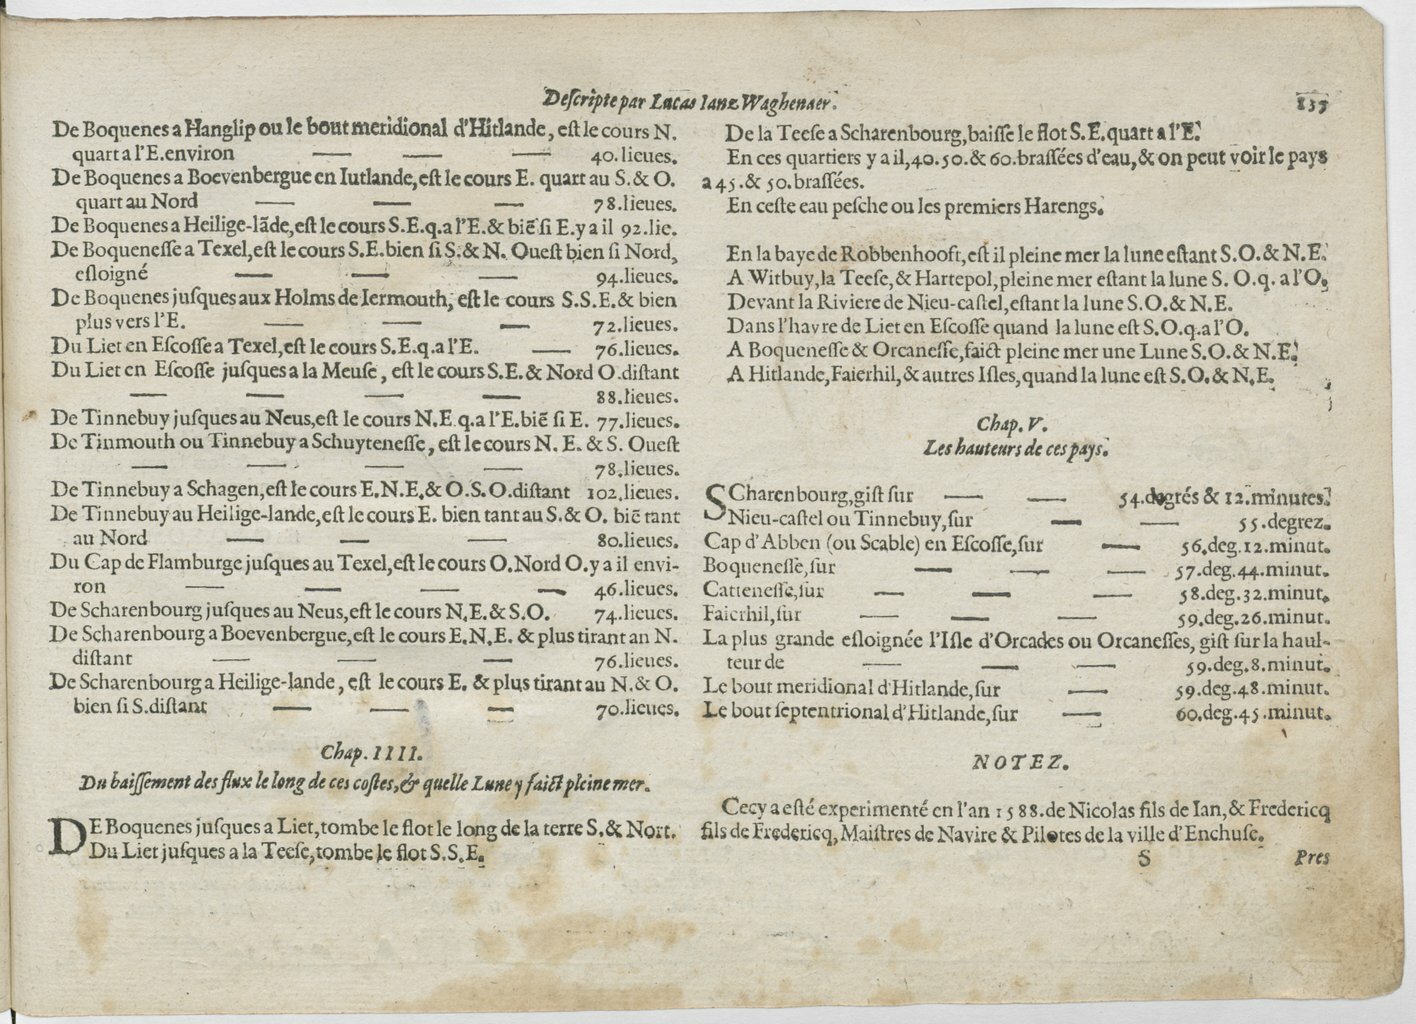 Descripte par Lucas Ianz Waghenaer.
137
De Boquenes a Hanglip ou le bout meridional d'Hitlande, est le cours N.
quart a l'E. environ — — — 40. lieues.
De Boquenes a Boevenbergue en Iutlande, est le cours E. quart au S. & O.
quart au Nord — — — 78. lieues.
De Boquenes a Heilige-lãde, est le cours S.E.q.a l'E. & biẽ si E. y a il 92. lie.
De Boquenesse a Texel, est le cours S.E. bien si S. & N. Ouest bien si Nord,
esloigné — — — 94. lieues.
De Boquenes jusques aux Holms de Iermouth, est le cours S.S.E. & bien
plus vers l'E. — — — 72. lieues.
Du Liet en Escosse a Texel, est le cours S.E.q.a l'E. — 76. lieues.
Du Liet en Escosse jusques a la Meuse, est le cours S.E. & Nord O. distant
— — — — 88. lieues.
De Tinnebuy jusques au Neus, est le cours N.E.q.a l'E. biẽ si E. 77. lieues.
De Tinmouth ou Tinnebuy a Schuytenesse, est le cours N. E. & S. Ouest
— — — — 78. lieues.
De Tinnebuy a Schagen, est le cours E.N.E. & O.S.O. distant 102. lieues.
De Tinnebuy au Heilige-lande, est le cours E. bien tant au S. & O. biẽ tant
au Nord — — — 80. lieues.
Du Cap de Flamburge jusques au Texel, est le cours O. Nord O. y a il envi-
ron — — — — 46. lieues.
De Scharenbourg jusques au Neus, est le cours N.E. & S.O. 74. lieues.
De Scharenbourg a Boevenbergue, est le cours E.N.E. & plus tirant an N.
distant — — — 76. lieues.
De Scharenbourg a Heilige-lande, est le cours E. & plus tirant au N. & O.
bien si S. distant — — — 70. lieues.
Chap. IIII.
Du baissement des flux le long de ces costes, & quelle Lune y faict pleine mer.
DE Boquenes jusques a Liet, tombe le flot le long de la terre S. & Nort.
Du Liet jusques a la Teese, tombe le flot S.S.E.
De la Teese a Scharenbourg, baisse le flot S.E. quart a l'E.
En ces quartiers y a il, 40. 50. & 60. brassées d'eau, & on peut voir le pays
a 45. & 50. brassées.
En ceste eau pesche ou les premiers Harengs.
En la baye de Robbenhooft, est il pleine mer la lune estant S.O. & N.E.
A Witbuy, la Teese, & Hartepol, pleine mer estant la lune S. O.q. a l'O.
Devant la Riviere de Nieu-castel, estant la lune S.O. & N.E.
Dans l'havre de Liet en Escosse quand la lune est S.O.q.a l'O.
A Boquenesse & Orcanesse, faict pleine mer une Lune S.O. & N.E.
A Hitlande, Faierhil, & autres Isles, quand la lune est S.O. & N.E.
Chap. V.
Les hauteurs de ces pays.
SCharenbourg, gist sur — — 54. degrés & 12. minutes.
Nieu-castel ou Tinnebuy, sur — — 55. degrez.
Cap d'Abben (ou Scable) en Escosse, sur — 56. deg. 12. minut.
Boquenesse, sur — — — 57. deg. 44. minut.
Cattenesse, sur — — — 58. deg. 32. minut.
Faierhil, sur — — — 59. deg. 26. minut.
La plus grande esloignée l'Isle d'Orcades ou Orcanesses, gist sur la haul-
teur de — — — 59. deg. 8. minut.
Le bout meridional d'Hitlande, sur — 59. deg. 48. minut.
Le bout septentrional d'Hitlande, sur — 60. deg. 45. minut.
NOTEZ.
Cecy a esté experimenté en l'an 1588. de Nicolas fils de Ian, & Fredericq
fils de Fredericq, Maistres de Navire & Pilotes de la ville d'Enchuse.
S
Pres